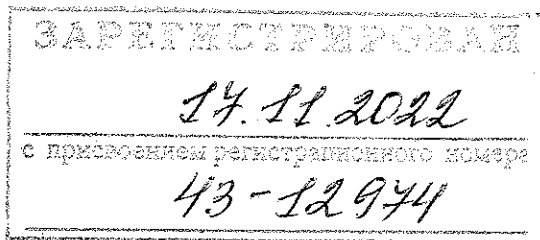 ЗАРЕГИСТРИРОВАН
17.11.2022
с присвоением регистрационного номера
43-12974